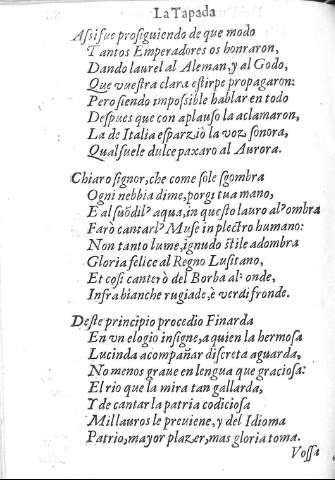 La Tapada
Assi fue prosiguiendo de que modo
Tantos Emperadores os honraron,
Dando laurel al Aleman, y al Godo,
Que vuestra clara estirpe propagaron:
Pero siendo impossible hablar en todo
Despues que con aplauso la aclamaron,
La de Italia esparzio la voz sonora,
Qual suele dulce paxaro al Aurora.
Chiaro signor, che come sole sgombra
Ogni nebbia dime, porgi tua mano,
E al suõ dil' aqua, in questo lauro al' ombra
Farò cantar l' Muse in plectro humano:
Non tanto lume, ignudo stile adombra
Gloria felice al Regno Lusitano,
Et cosi canterò del Borba al' onde,
Infra bianche rugiade, è verdi fronde.
Deste principio procedio Finarda
En vn elogio insigne, a quien la hermosa
Lucinda acompañar discreta aguarda,
No menos graue en lengua que graciosa:
El rio que la mira tan gallarda,
Y de cantar la patria codiciosa
Mil lauros le preuiene, y del Idioma
Patrio, mayor plazer, mas gloria toma.
Vossa